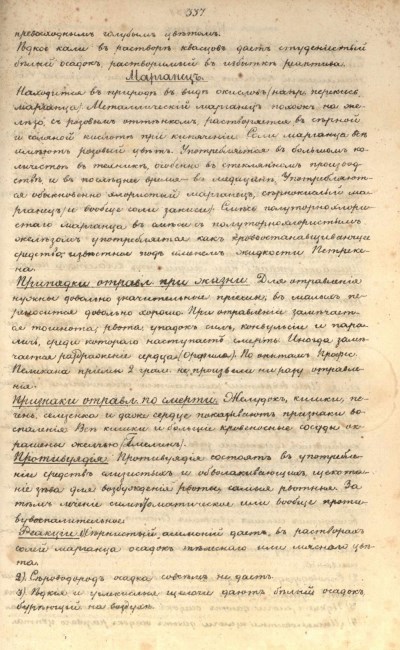 337
превосходнымъ голубымъ цвѣтомъ.
Ѣдкое кали въ растворѣ квасцовъ даетъ студенистый
бѣлый осадокъ, растворимый въ избыткѣ реактива.
Марганецъ.
Находится въ природѣ въ видѣ окисловъ (напр. перекись
марганца). Металлическій марганецъ похожъ на же-
лѣзо, съ розовымъ оттѣнкомъ, растворяется въ сѣрной
и соляной кислотѣ при кипяченіи. Соли марганца всѣ
имѣютъ розовый цвѣтъ. Употребляется въ большомъ ко-
личествѣ въ техникѣ, особенно въ стеклянномъ производ-
ствѣ и въ послѣднее время въ медицинѣ. Употребляют-
ся обыкновенно хлористый марганецъ, сѣрнокислый ма-
рганецъ и вообще соли закиси. Смѣсь полуторнохлорис-
таго марганца въ смѣси съ полуторнохлористымъ
желѣзомъ употребляется какъ кровоостанавливающее
средство, извѣстное подъ именемъ жидкости Петреке-
на.
Припадки отравл. при жизни. Для отравленія
нужны довольно значительные пріемы, въ малыхъ пе-
реносится довольно хорошо. При отравленіи замѣчает-
ся тошнота, рвота, упадокъ силъ, конвульсіи и пара-
личъ, среди котораго наступаетъ смерть. Иногда замѣ-
чается раздраженіе сердца (Орфила). По опытамъ Проф.
Пеликана пріемы 2 грам. не произвели ни разу отравле-
нія.
Признаки отравл. по смерти. Желудокъ, кишки, пе-
чень, селезенка и даже сердце показываютъ признаки во-
спаленія. Всѣ кишки и большіе кровеносные сосуды ок-
рашены желчью (Гмелинъ).
Противуядія. Противуядія состоятъ въ употребле-
ніи средствъ слизистыхъ и обволакивающихъ, щекота-
ніе зѣва для возбужденія рвоты, самыя рвотныя. За
тѣмъ лѣченіе симптоматическое или вообще проти-
вувоспалительное.
Реакціи 1) Сѣрнистый аммоній даетъ въ растворахъ
солей марганца осадокъ тѣлеснаго или мяснаго цвѣ-
та.
2) Сѣроводородъ осадка совсѣмъ не даетъ.
3) Ѣдкія и углекислыя щелочи даютъ бѣлый осадокъ
бурѣющій на воздухѣ.